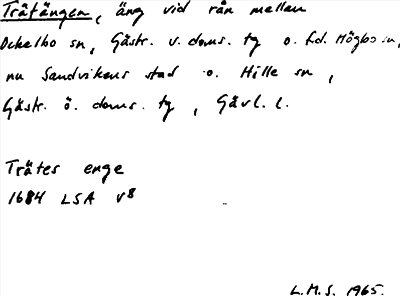 Trätängen, äng vid rån mellan
Ockelbo sn, Gästr. v. doms. tg o. f.d. Högbo sn,
nu Sandvikens stad o. Hille sn,
Gästr. ö. doms. tg, Gävl. l.
Trätes enge
1684 LSA V8
L.M.S. 1965.